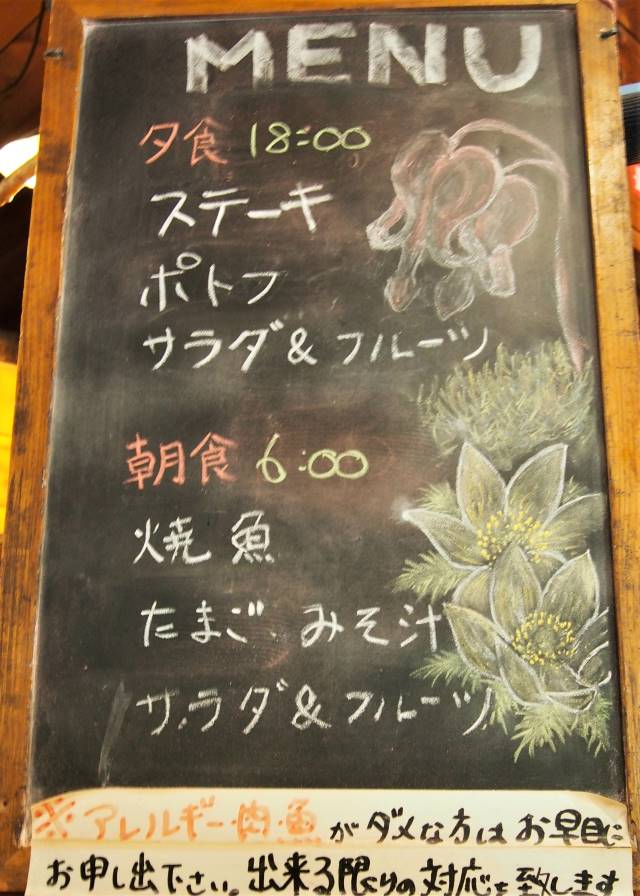 MENU
夕食 18:00
ステーキ
ポトフ
サラダ&フルーツ
朝食 6:00
焼魚
たまご、みそ汁
サラダ&フルーツ
※アレルギー・肉・魚がダメな方はお早目に
お申し出下さい。出来る限りの対応を致します